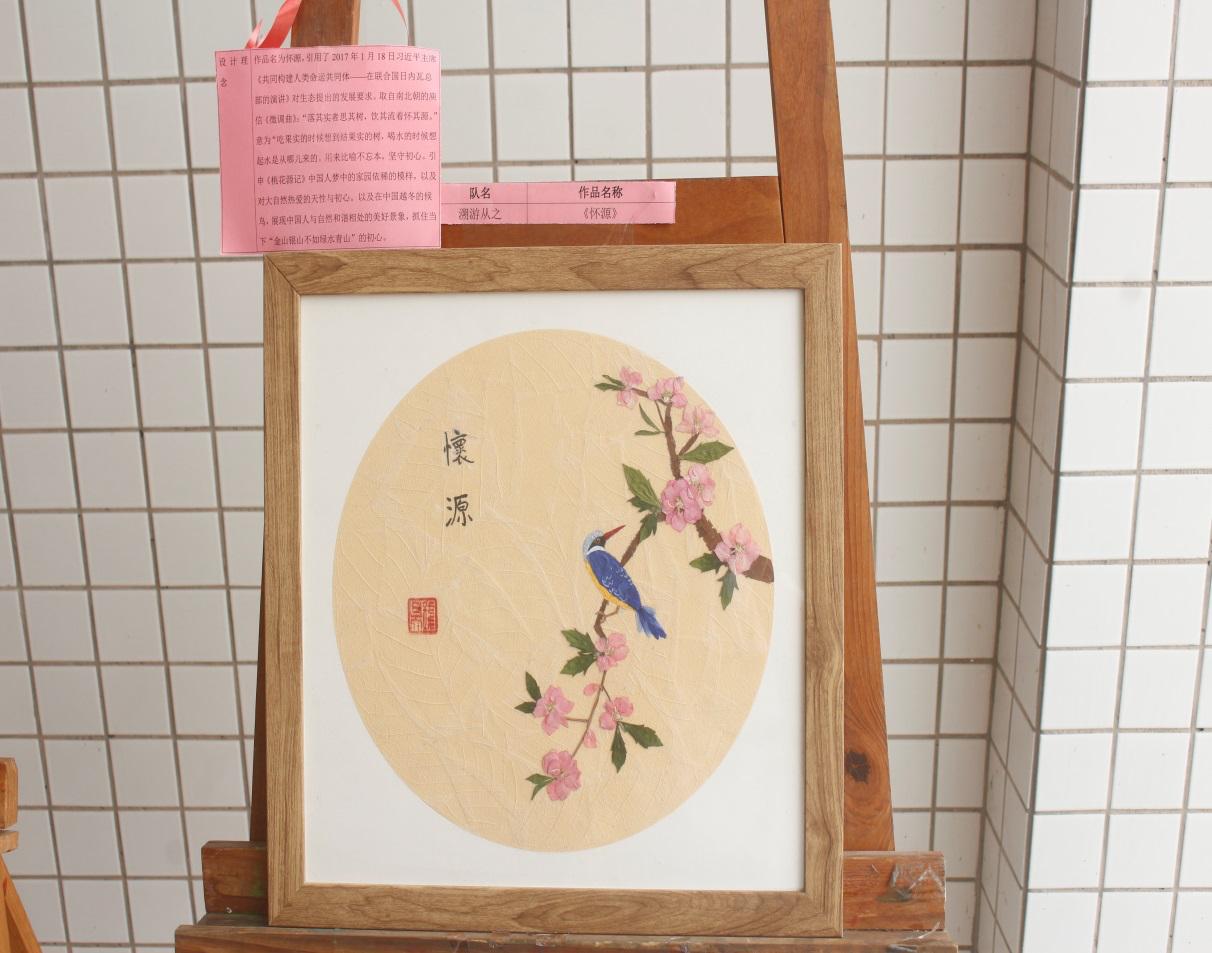 设计理念
作品名为怀源，引用了 2017 年 1 月 18 日习近平主席
《共同构建人类命运共同体——在联合国日内瓦总
部的演讲》对生态提出的发展要求。取自南北朝的庾
信《徵调曲》：“落其实者思其树，饮其流者怀其源。”
意为“吃果实的时候想到结果实的树，喝水的时候想
起水是从哪儿来的，用来比喻不忘本，坚守初心。引
申《桃花源记》中国人梦中的家园依稀的模样，以及
对大自然热爱的天性与初心。以及在中国越冬的候
鸟，展现中国人与自然和谐相处的美好景象，抓住当
下“金山银山不如绿水青山”的初心。
队名 作品名称
溯游从之 《怀源》
懷
源